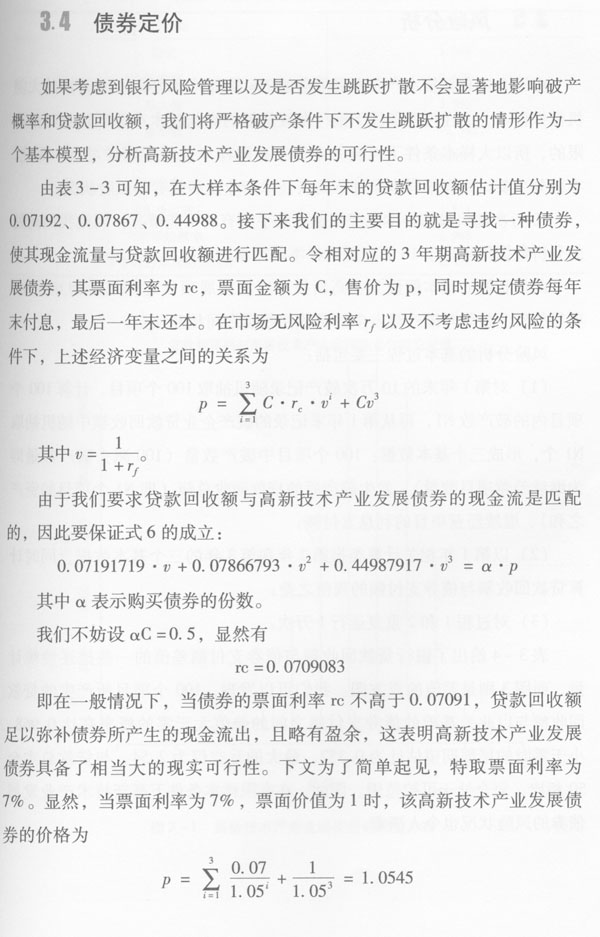 3.4 债券定价
如果考虑到银行风险管理以及是否发生跳跃扩散不会显著地影响破产
概率和贷款回收额，我们将严格破产条件下不发生跳跃扩散的情形作为一
个基本模型，分析高新技术产业发展债券的可行性。
由表3-3可知，在大样本条件下每年末的贷款回收额估计值分别为
0.07192、0.07867、0.44988。接下来我们的主要目的就是寻找一种债券，
使其现金流量与贷款回收额进行匹配。令相对应的3年期高新技术产业发
展债券，其票面利率为rc，票面金额为C，售价为p，同时规定债券每年
末付息，最后一年末还本。在市场无风险利率 r_f 以及不考虑违约风险的条
件下，上述经济变量之间的关系为
p = ∑_{i=1}^{3} C · r_c · v^i + Cv^3
其中 v = 1/(1 + r_f)。
由于我们要求贷款回收额与高新技术产业发展债券的现金流是匹配
的，因此要保证式6的成立：
0.07191719 · v + 0.07866793 · v^2 + 0.44987917 · v^3 = α · p
其中 α 表示购买债券的份数。
我们不妨设 αC = 0.5，显然有
rc = 0.0709083
即在一般情况下，当债券的票面利率 rc 不高于0.07091，贷款回收额
足以弥补债券所产生的现金流出，且略有盈余，这表明高新技术产业发展
债券具备了相当大的现实可行性。下文为了简单起见，特取票面利率为
7%。显然，当票面利率为7%，票面价值为1时，该高新技术产业发展债
券的价格为
p = ∑_{i=1}^{3} 0.07/1.05^i + 1/1.05^3 = 1.0545